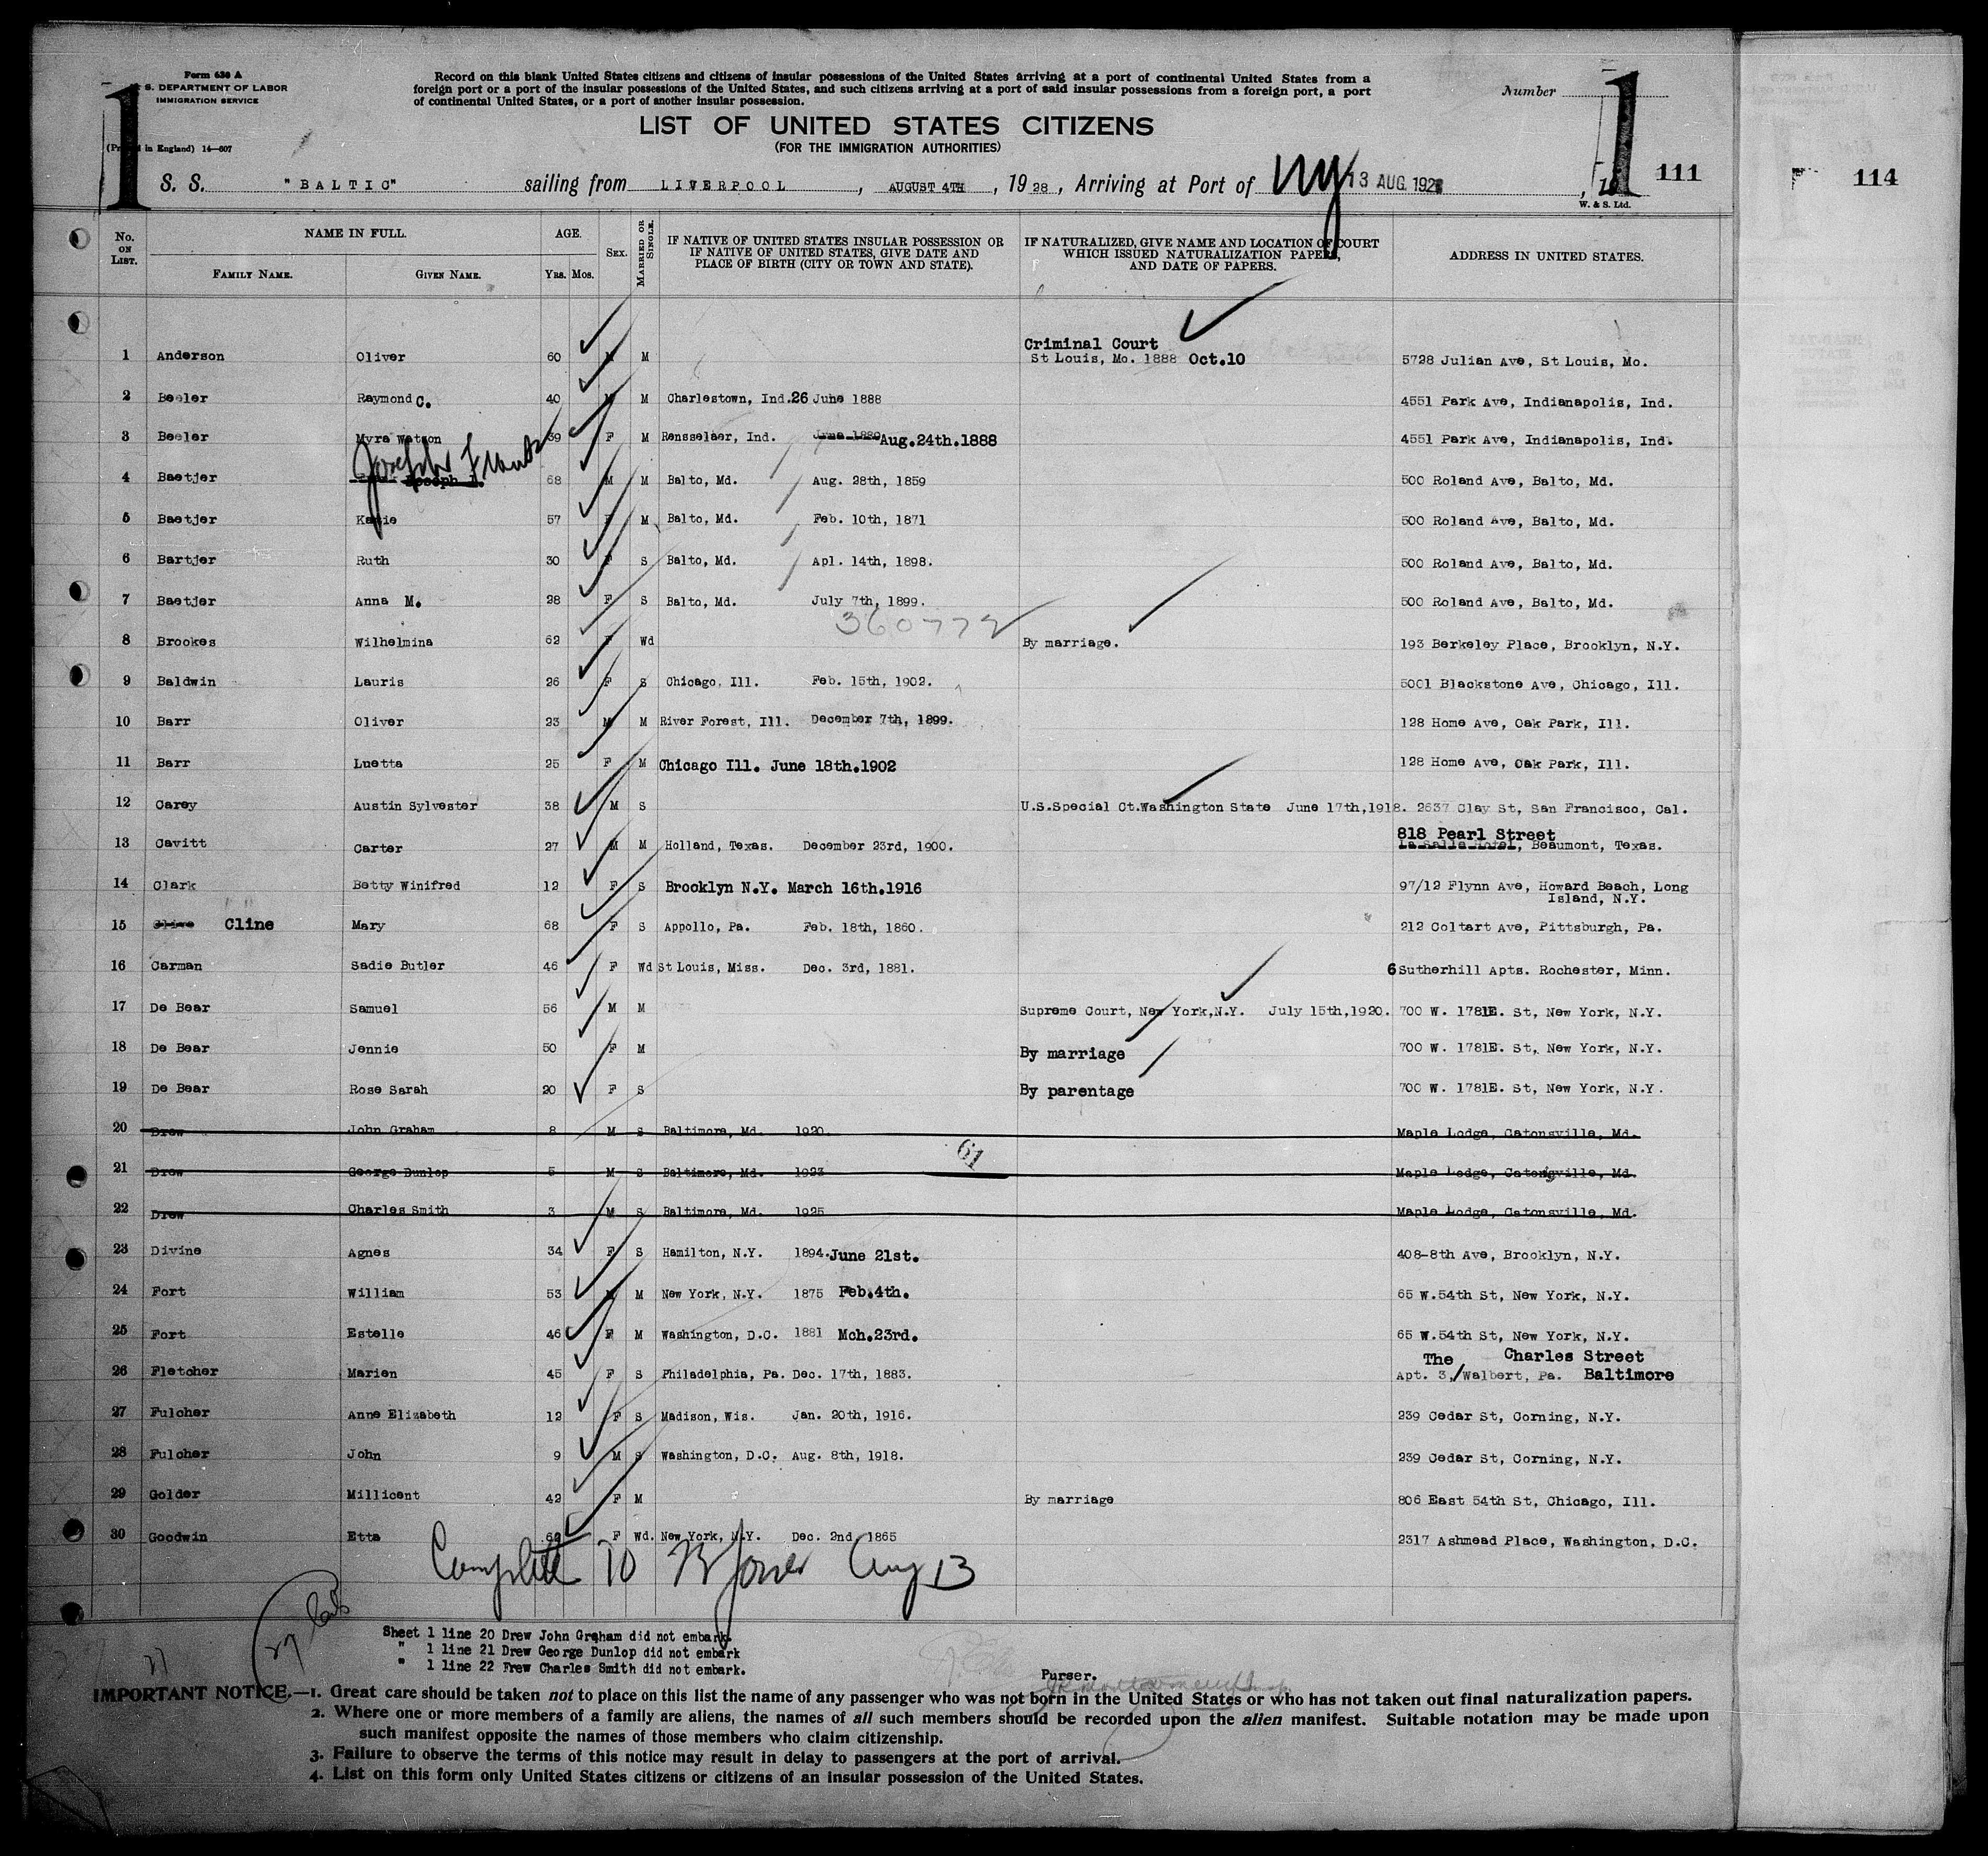 Form 630 A
S. DEPARTMENT OF LABOR
IMMIGRATION SERVICE
(Pr in England) 14—607
1
Record on this blank United States citizens and citizens of insular possessions of the United States arriving at a port of continental United States from a
foreign port or a port of the insular possessions of the United States, and such citizens arriving at a port of said insular possessions from a foreign port, a port
of continental United States, or a port of another insular possession.
Number
1
111
114
LIST OF UNITED STATES CITIZENS
(FOR THE IMMIGRATION AUTHORITIES)
S. S. "BALTIC" sailing from LIVERPOOL, AUGUST 4TH, 1928, Arriving at Port of NY 13 AUG. 192
W. & S. Ltd.
No. ON LIST. NAME IN FULL. FAMILY NAME. GIVEN NAME. AGE. YRS. MOS. SEX. MARRIED OR SINGLE. IF NATIVE OF UNITED STATES INSULAR POSSESSION OR IF NATIVE OF UNITED STATES, GIVE DATE AND PLACE OF BIRTH (CITY OR TOWN AND STATE). IF NATURALIZED, GIVE NAME AND LOCATION OF COURT WHICH ISSUED NATURALIZATION PAPERS, AND DATE OF PAPERS. ADDRESS IN UNITED STATES.
Criminal Court
1 Anderson Oliver 60 M M St Louis, Mo. 1888 Oct.10 5728 Julian Ave, St Louis, Mo.
2 Beeler Raymond C. 40 M M Charlestown, Ind. 26 June 1888 4551 Park Ave, Indianapolis, Ind.
3 Beeler Myra Watson 39 F M Rensselaer, Ind. Aug.24th.1888 4551 Park Ave, Indianapolis, Ind.
Joseph Frank
4 Baetjer Joseph 68 M M Balto, Md. Aug. 28th, 1859 500 Roland Ave, Balto, Md.
5 Baetjer Katie 57 F M Balto, Md. Feb. 10th, 1871 500 Roland Ave, Balto, Md.
6 Bartjer Ruth 30 F S Balto, Md. Apl. 14th, 1898. 500 Roland Ave, Balto, Md.
7 Baetjer Anna M. 28 F S Balto, Md. July 7th, 1899. 500 Roland Ave, Balto, Md.
360772
8 Brookes Wilhelmina 62 F Wd By marriage. 193 Berkeley Place, Brooklyn, N.Y.
9 Baldwin Lauris 26 F S Chicago, Ill. Feb. 15th, 1902. 5001 Blackstone Ave, Chicago, Ill.
10 Barr Oliver 23 M M River Forest, Ill. December 7th, 1899. 128 Home Ave, Oak Park, Ill.
11 Barr Luetta 25 F M Chicago Ill. June 18th.1902 128 Home Ave, Oak Park, Ill.
12 Carey Austin Sylvester 38 M S U.S.Special Ct.Washington State June 17th,1918. 2637 Clay St, San Francisco, Cal.
818 Pearl Street
13 Cavitt Carter 27 M M Holland, Texas. December 23rd, 1900. La Salle Hotel, Beaumont, Texas.
14 Clark Betty Winifred 12 F S Brooklyn N.Y. March 16th.1916 97/12 Flynn Ave, Howard Beach, Long
Island, N.Y.
15 Clive Cline Mary 68 F S Appollo, Pa. Feb. 18th, 1860. 212 Coltart Ave, Pittsburgh, Pa.
16 Carman Sadie Butler 46 F Wd St Louis, Miss. Dec. 3rd, 1881. 6 Sutherhill Apts. Rochester, Minn.
17 De Bear Samuel 56 M M Supreme Court, New York,N.Y. July 15th,1920. 700 W. 178 St, New York, N.Y.
18 De Bear Jennie 50 F M By marriage 700 W. 178 St, New York, N.Y.
19 De Bear Rose Sarah 20 F S By parentage 700 W. 178 St, New York, N.Y.
20 Drew John Graham 8 M S Baltimore, Md. 1920. Maple Lodge, Catonsville, Md.
61
21 Drew George Dunlop 5 M S Baltimore, Md. 1923 Maple Lodge, Catonsville, Md.
22 Drew Charles Smith 3 M S Baltimore, Md. 1925 Maple Lodge, Catonsville, Md.
23 Divine Agnes 34 F S Hamilton, N.Y. 1894. June 21st. 408-8th Ave, Brooklyn, N.Y.
24 Fort William 53 M M New York, N.Y. 1875 Feb.4th. 65 W.54th St, New York, N.Y.
25 Fort Estelle 46 F M Washington, D.C. 1881 Mch.23rd. 65 W.54th St, New York, N.Y.
The Charles Street
26 Fletcher Marien 45 F S Philadelphia, Pa. Dec. 17th, 1883. Apt. 3, Walbert, Pa. Baltimore
27 Fulcher Anne Elizabeth 12 F S Madison, Wis. Jan. 20th, 1916. 239 Cedar St, Corning, N.Y.
28 Fulcher John 9 M S Washington, D.C. Aug. 8th, 1918. 239 Cedar St, Corning, N.Y.
29 Golder Millicent 42 F M By marriage 806 East 54th St, Chicago, Ill.
30 Goodwin Etta F Wd. New York, N.Y. Dec. 2nd, 1865 2317 Ashmead Place, Washington, D.C.
Complete Aug 13
27
Sheet 1 line 20 Drew John Graham did not embark.
" 1 line 21 Drew George Dunlop did not embark
" 1 line 22 Frew Charles Smith did not embark.
Purser.
IMPORTANT NOTICE.—1. Great care should be taken not to place on this list the name of any passenger who was not born in the United States or who has not taken out final naturalization papers.
2. Where one or more members of a family are aliens, the names of all such members should be recorded upon the alien manifest. Suitable notation may be made upon
such manifest opposite the names of those members who claim citizenship.
3. Failure to observe the terms of this notice may result in delay to passengers at the port of arrival.
4. List on this form only United States citizens or citizens of an insular possession of the United States.